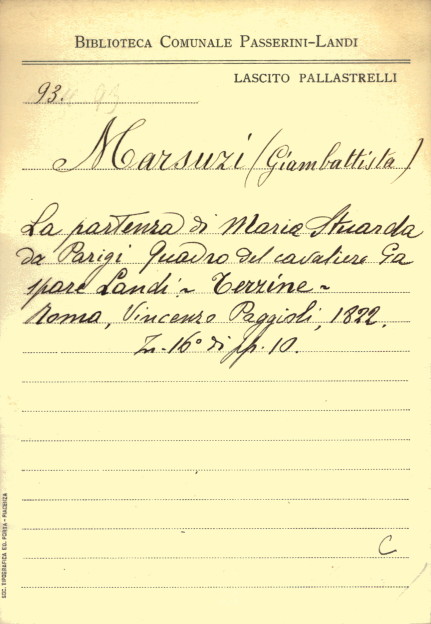 BIBLIOTECA COMUNALE PASSERINI-LANDI
LASCITO PALLASTRELLI
93.
Marsuzi (Giambattista)
La partenza di Maria Stuarda
da Parigi Quadro del cavaliere Ga
spare Landi ~ Terzine ~
Roma, Vincenzo Poggioli, 1822.
In-16° di pp. 10.
C
SOC. TIPOGRAFICA ED. PORTA - PIACENZA